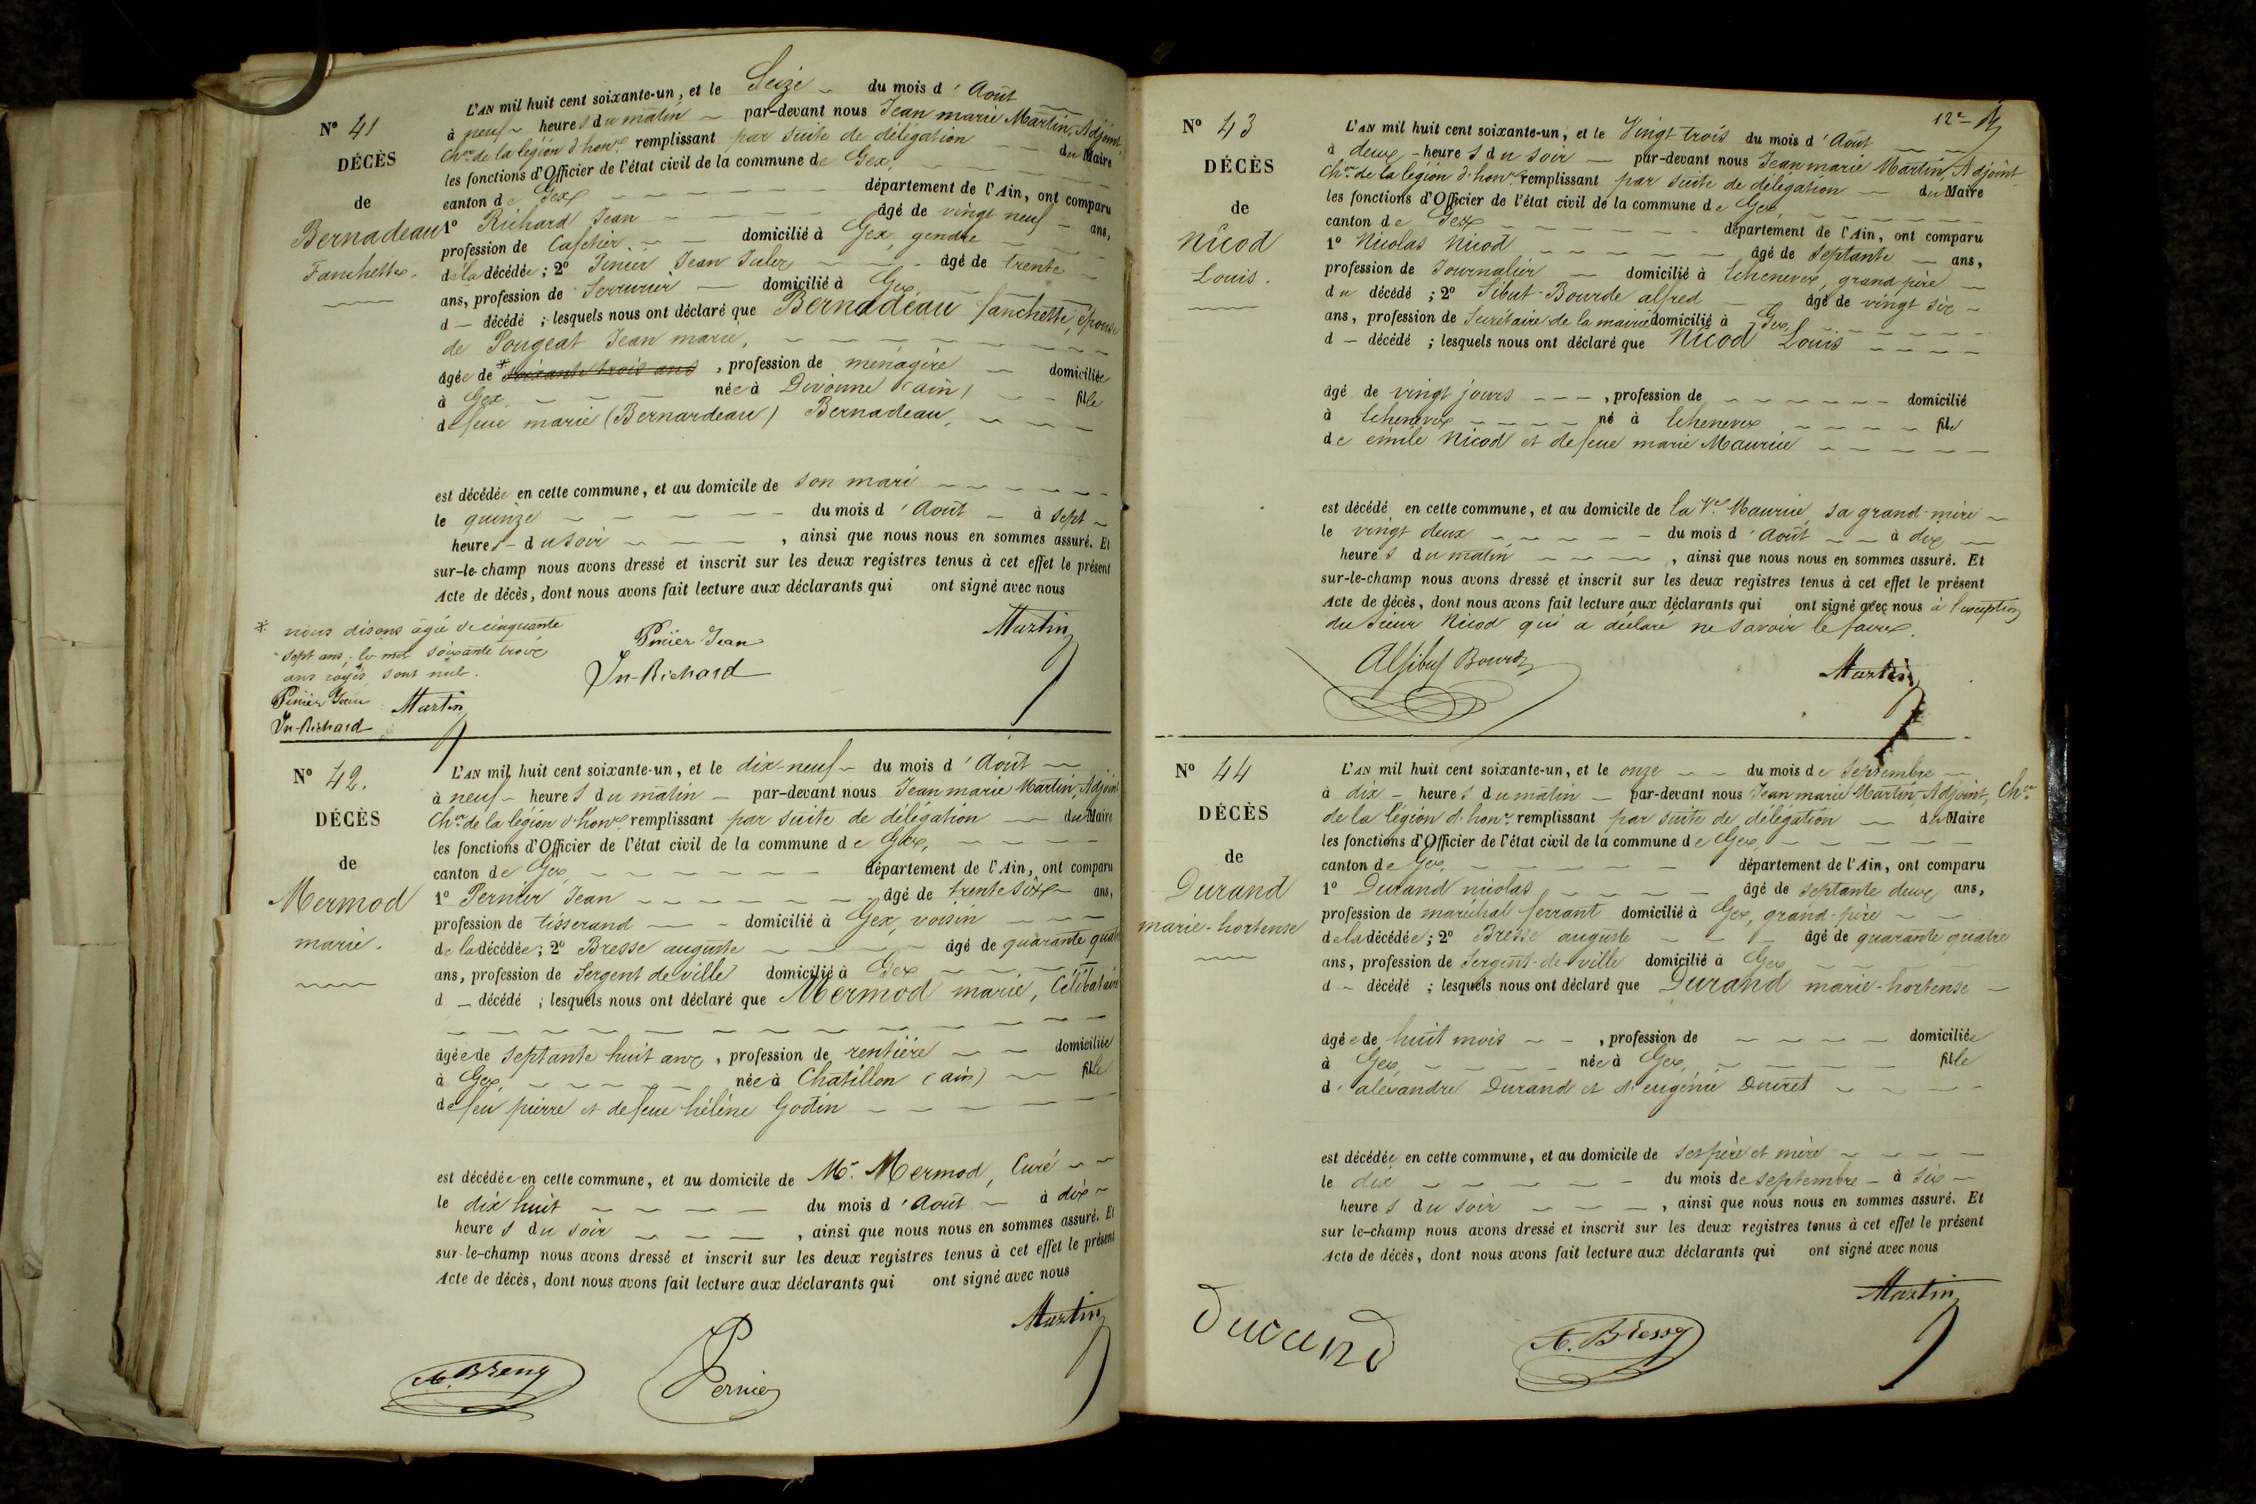 L'AN mil huit cent soixante-un, et le Seize du mois d'Août
N° 41
à neuf heures du matin par-devant nous Jean marie Martin, Adjoint,
DÉCÈS
Ch.er de la légion d'hon.r remplissant par suite de délégation du Maire
les fonctions d'Officier de l'état civil de la commune de Gex,
de
canton de Gex département de l'Ain, ont comparu
Bernadeau
1° Richard Jean âgé de vingt neuf ans,
Fanchette.
profession de Cafetier domicilié à Gex, gendre
de la décédée; 2° Jean âgé de trente
ans, profession de Serrurier domicilié à Gex
d décédé ; lesquels nous ont déclaré que Bernadeau fanchette, épouse
de Pougeat Jean marie,
âgée de * soixante trois ans, profession de ménagère domiciliée
à Gex née à Divonne (ain) fille
de feue marie (Bernardeau) Bernadeau,
est décédée en cette commune, et au domicile de son mari
le quinze du mois d'Août à sept
heures du soir, ainsi que nous nous en sommes assuré. Et
sur-le-champ nous avons dressé et inscrit sur les deux registres tenus à cet effet le présent
Acte de décès, dont nous avons fait lecture aux déclarants qui ont signé avec nous
* nous disons âgée de cinquante
sept ans; les mots soixante trois
ans rayés sont nuls.
Jean Martin
Jn-Richard
Martin
Jean
Jn-Richard
N° 42.
L'AN mil huit cent soixante-un, et le dix-neuf du mois d'Août
à neuf heures du matin par-devant nous Jean marie Martin, Adjoint
DÉCÈS
Ch.er de la légion d'hon.r remplissant par suite de délégation du Maire
les fonctions d'Officier de l'état civil de la commune de Gex,
de
canton de Gex, département de l'Ain, ont comparu
Mermod
1° Pernier Jean âgé de trente six ans,
marie.
profession de tisserand domicilié à Gex, voisin
de la décédée; 2° Bresse auguste âgé de quarante quatre
ans, profession de Sergent de ville domicilié à Gex
d décédé ; lesquels nous ont déclaré que Mermod marie, Célibataire
âgée de septante huit ans, profession de rentière domiciliée
à Gex, née à Chatillon (ain) fille
de feu pierre et de feue hélène Godin
est décédée en cette commune, et au domicile de Mr. Mermod, Curé
le dix huit du mois d'Août à dix
heures du soir, ainsi que nous nous en sommes assuré. Et
sur-le-champ nous avons dressé et inscrit sur les deux registres tenus à cet effet le présent
Acte de décès, dont nous avons fait lecture aux déclarants qui ont signé avec nous
Martin
A. Bressy
Pernier
12e
N° 43
L'AN mil huit cent soixante-un, et le Vingt trois du mois d'Août
à deux heures du soir par-devant nous Jean marie Martin, Adjoint
DÉCÈS
Ch.er de la légion d'hon.r remplissant par suite de délégation du Maire
les fonctions d'Officier de l'état civil de la commune de Gex,
de
canton de Gex département de l'Ain, ont comparu
Nicod
1° Nicolas Nicod âgé de septante ans,
Louis.
profession de Journalier domicilié à Echenevex, grand père
du décédé ; 2° Sibut-Bourde alfred âgé de vingt six
ans, profession de Secrétaire de la mairie domicilié à Gex,
d décédé ; lesquels nous ont déclaré que Nicod Louis
âgé de vingt jours, profession de domicilié
à Echenevex né à Echenevex fils
de émile Nicod et de feue marie Maurice
est décédé en cette commune, et au domicile de la Ve Maurice, sa grand-mère
le vingt deux du mois d'Août à dix
heures du matin, ainsi que nous nous en sommes assuré. Et
sur-le-champ nous avons dressé et inscrit sur les deux registres tenus à cet effet le présent
Acte de décès, dont nous avons fait lecture aux déclarants qui ont signé avec nous à l'exception
du Sieur Nicod qui a déclaré ne savoir le faire.
Martin
N° 44
L'AN mil huit cent soixante-un, et le onze du mois de Septembre
à dix heures du matin par-devant nous Jean marie Martin, Adjoint, Ch.er
DÉCÈS
de la légion d'hon.r remplissant par suite de délégation du Maire
les fonctions d'Officier de l'état civil de la commune de Gex,
de
canton de Gex, département de l'Ain, ont comparu
Durand
1° Durand nicolas âgé de septante deux ans,
marie-hortense
profession de maréchal ferrant domicilié à Gex, grand-père
de la décédée; 2° Bresse auguste âgé de quarante quatre
ans, profession de Sergent-de-ville domicilié à Gex
d décédé ; lesquels nous ont déclaré que Durand marie-hortense
âgée de huit mois, profession de domiciliée
à Gex, née à Gex, fille
d'alexandre Durand et d'eugénie
est décédée en cette commune, et au domicile de ses père et mère
le dix du mois de septembre à six
heures du soir, ainsi que nous nous en sommes assuré. Et
sur-le-champ nous avons dressé et inscrit sur les deux registres tenus à cet effet le présent
Acte de décès, dont nous avons fait lecture aux déclarants qui ont signé avec nous
Martin
Durand
A. Bressy